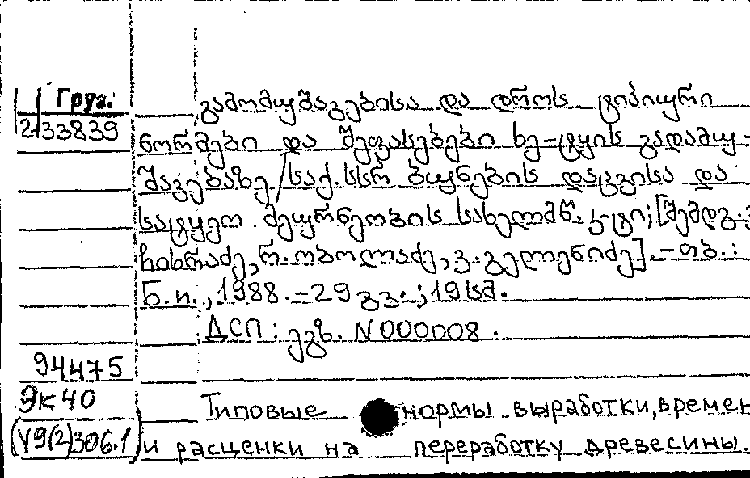 Груз.
2/33839
გამომუშავებისა და დროს ტიპიური
ნორმები და შეფასებები ხე-ტყის გადამუ-
შავებაზე /საქ.სსრ ბუნების დაცვისა და
სატყეო მეურნეობის სახელმწ. კ-ტი; [შემდგ.
ჩიხრაძე, რ. ობოლაძე, ვ. გელენიძე]. - თბ.:
Б.и., 1988. - 29 გვ.; 19 სმ.
ДСП: ეგზ. N000008.
94475
Эк40
(У9(2)306.1)
Типовые нормы выработки, времен
и расценки на переработку древесины.